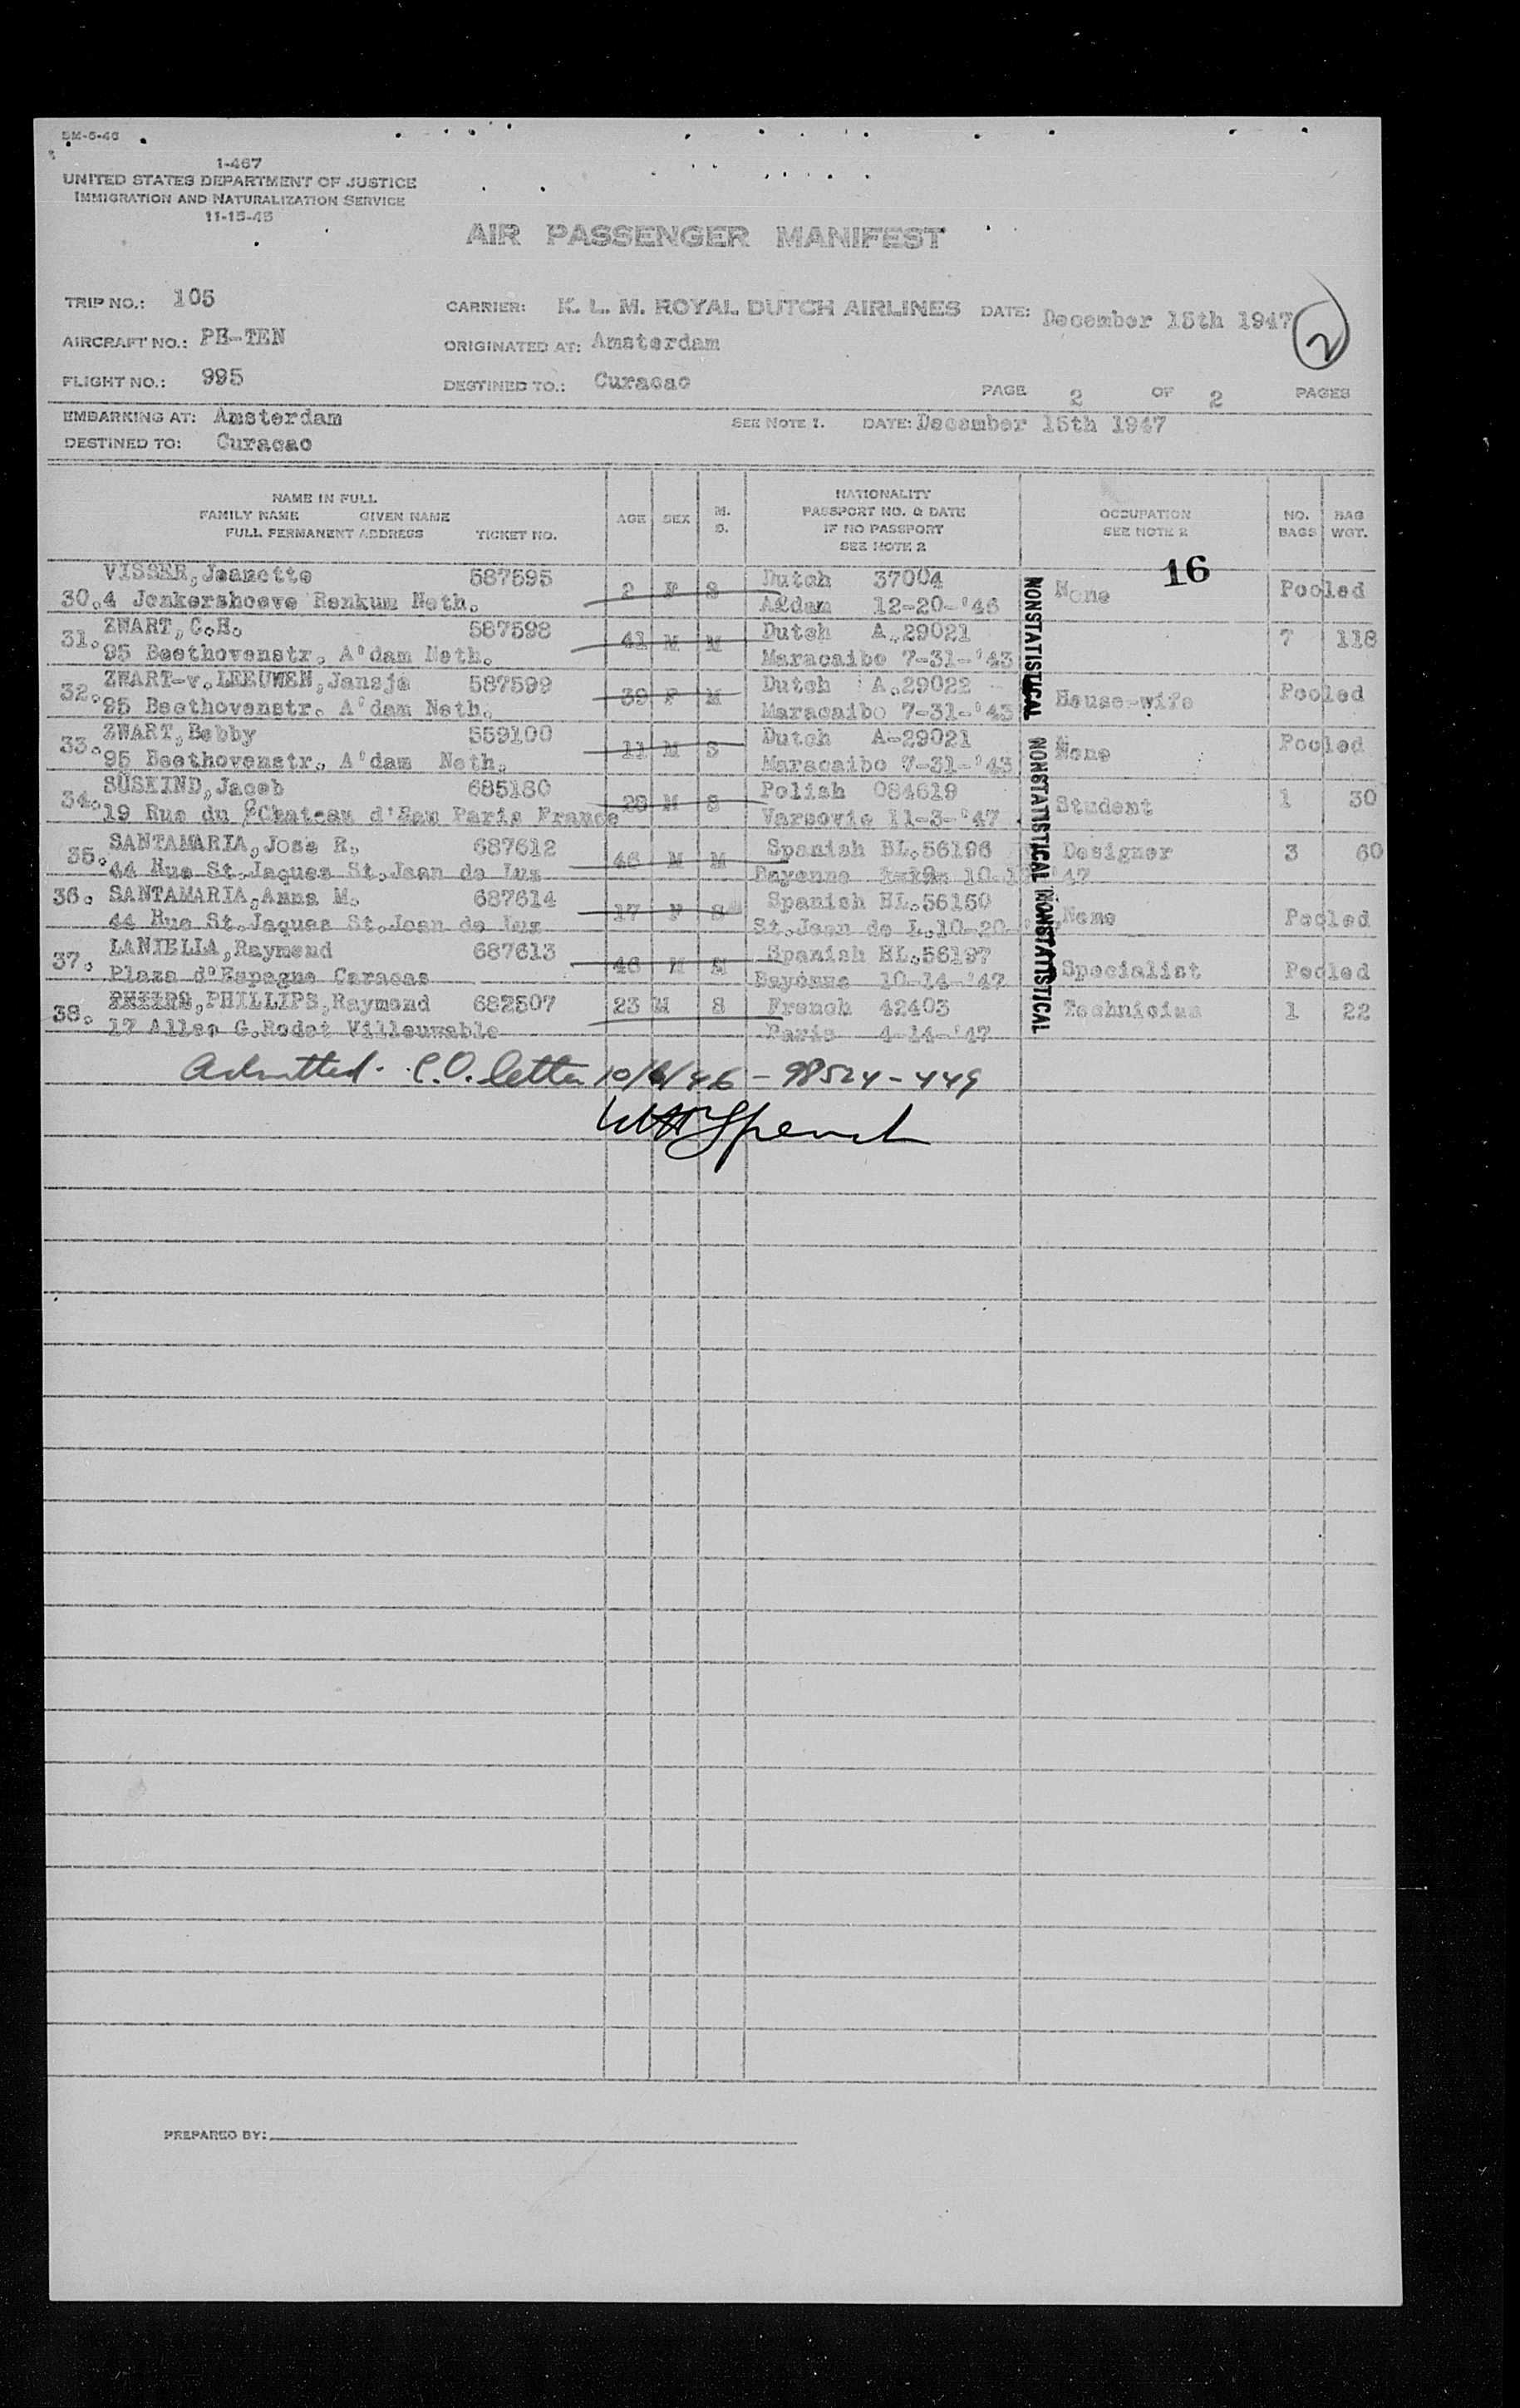 5M-5-46
1-467
UNITED STATES DEPARTMENT OF JUSTICE
IMMIGRATION AND NATURALIZATION SERVICE
11-15-45
AIR PASSENGER MANIFEST
TRIP NO.: 105 CARRIER: K. L. M. ROYAL DUTCH AIRLINES DATE: December 15th 1947 2
AIRCRAFT NO.: PH-TEN ORIGINATED AT: Amsterdam
FLIGHT NO.: 995 DESTINED TO.: Curacao PAGE 2 OF 2 PAGES
EMBARKING AT: Amsterdam SEE NOTE 1. DATE: December 15th 1947
DESTINED TO: Curacao
NAME IN FULL
FAMILY NAME GIVEN NAME
FULL PERMANENT ADDRESS TICKET NO. AGE SEX M. S. NATIONALITY PASSPORT NO. & DATE IF NO PASSPORT SEE NOTE 2 OCCUPATION SEE NOTE 2 NO. BAGS BAG WGT.
16
VISSER, Jeanette 587595 2 F S Dutch 37004 None Pooled
30. 4 Jonkershoeve Renkum Neth. A'dam 12-20-'46
31. ZWART, C.H. 587598 41 M M Dutch A.29021 7 118
95 Beethovenstr. A'dam Neth. Maracaibo 7-31-'43
32. ZWART-v.LEEUWEN, Jansje 587599 39 F M Dutch A.29022 House-wife Pooled
95 Beethovenstr. A'dam Neth. Maracaibo 7-31-'43
33. ZWART, Bobby 559100 11 M S Dutch A-29021 None Pooled
95 Beethovenstr. A'dam Neth. Maracaibo 7-31-'43
34. SÜSKIND, Jacob 685180 28 M S Polish 084619 Student 1 30
19 Rue du Chateau d'Eau Paris France Varsovie 11-3-'47
35. SANTAMARIA, Jose R. 687612 46 M M Spanish BL.56196 Designer 3 60
44 Rue St.Jaques St.Jean de Luz Bayonne '47
36. SANTAMARIA, Anna M. 687614 17 F S Spanish BL.56150 None Pooled
44 Rue St.Jaques St.Jean de Luz St.Jean de L.10-20
37. LANIELLA, Raymond 687613 46 M M Spanish BL.56197 Specialist Pooled
Plaza d'Espagne Caracas Bayonne 10-14-'47
38. PHILLIPS, Raymond 682507 23 M S French 42403 Technicien 1 22
17 Allee G.Rodet Villeurbable Paris 4-14-'47
NONSTATISTICAL NONSTATISTICAL NONSTATISTICAL
Admitted. C.O. letter 10/6/46 - 98524-449
PREPARED BY: